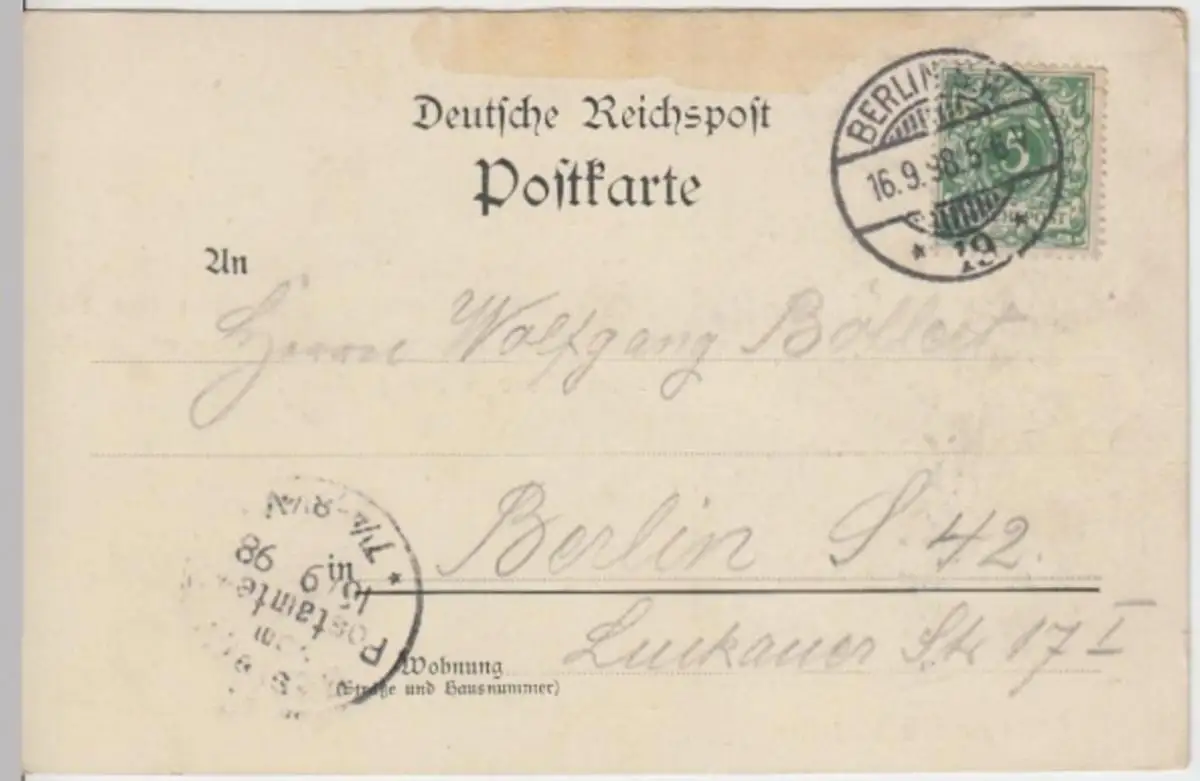 Deutsche Reichspost
Postkarte
BERLIN S.W.
16.9.98.5-6
19
5
An
Herrn Wolfgang Böllert
Berlin S. 42.
in
Luckauer Str 17 I
Wohnung
(Straße und Hausnummer)
Postamte
9 98